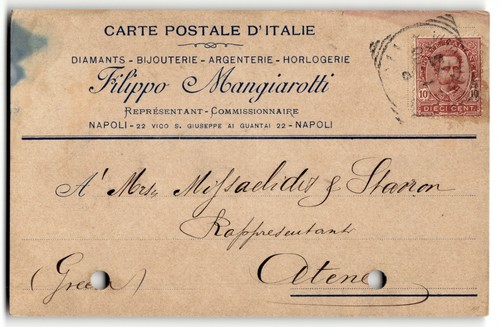 CARTE POSTALE D'ITALIE
DIAMANTS - BIJOUTERIE - ARGENTERIE - HORLOGERIE
Filippo Mangiarotti
REPRÉSENTANT - COMMISSIONNAIRE
NAPOLI - 22 VICO S. GIUSEPPE AI GUANTAI 22 - NAPOLI
10 10
DIECI CENT.
A' Mrs, Missaelidis & Stanon
Rappresentanti
(Grecia) Atene